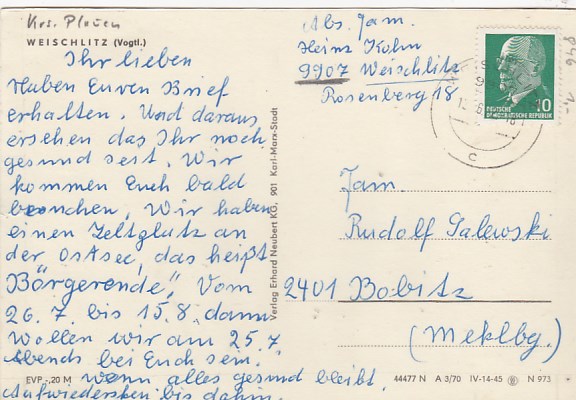 Krs. Plauen
WEISCHLITZ (Vogtl.)
Ihr lieben
Haben Euren Brief
erhalten. Und daraus
ersehen das Ihr noch
gesund seit. Wir
kommen Euch bald
besuchen, Wir haben
einen Zeltplatz an
der OstSee, das heißt
"Börgerende", Vom
26. 7. bis 15. 8. dann
wollen wir am 25. 7
Abends bei Euch sein.
wenn alles gesund bleibt.
Aufwiedersehen bis dahin.
EVP -,20 M
Verlag Erhard Neubert KG, 901 Karl-Marx-Stadt
Abs. Fam.
Heinz Kohn
9907 Weischlitz
Rosenberg 18
10
DEUTSCHE
DEMOKRATISCHE REPUBLIK
c
Fam.
Rudolf Galewski
2401 Bobitz
(Meklbg.)
44477 N A 3/70 IV-14-45 N 973